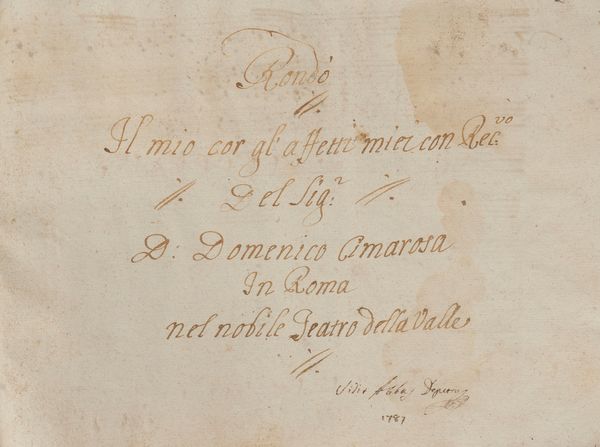 Rondò
Il mio cor gl' affetti miei con Rec.vo
Del Sig.r
D: Domenico Cimarosa
In Roma
nel nobile Teatro della Valle
1787